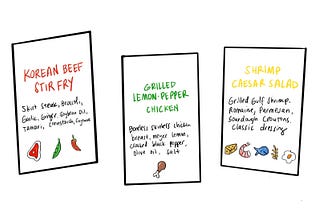 KOREAN BEEF
STIR FRY
Skirt Steak, Broccoli,
Garlic, Ginger, Soybean Oil,
Tamari, Cornstarch, Cayenne
GRILLED
LEMON-PEPPER
CHICKEN
Boneless skinless chicken
breast, meyer lemon,
cracked black pepper,
olive oil, salt
SHRIMP
CAESAR SALAD
Grilled Gulf Shrimp,
Romaine, Parmesan,
Sourdough Croutons,
classic dressing